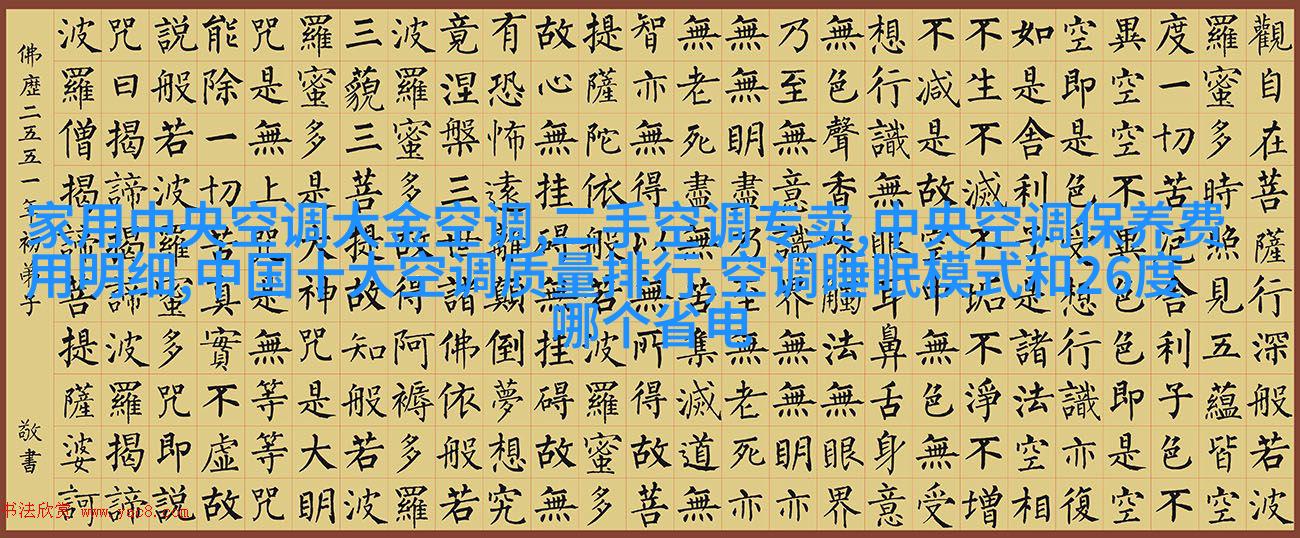 觀自在菩薩行深般若波
羅蜜多時照見五蘊皆空
度一切苦厄舍利子色不
異空空不異色色即是空
空即是色受想行識亦復
如是舍利子是諸法空相
不生不滅不垢不淨不增
不減是故空中無色無受
想行識無眼耳鼻舌身意
無色聲香味觸法無眼界
乃至無意識界無無明亦
無無明盡乃至無老死亦
無老死盡無苦集滅道無
智亦無得以無所得故菩
提薩陀依般若波羅蜜多
故心無挂礙無挂礙故無
有恐怖遠離顛倒夢想究
竟涅槃三世諸佛依般若
波羅蜜多故得阿褥多羅
三藐三菩提故知般若波
羅蜜多是大神咒是大明
咒是無上咒是無等等咒
能除一切苦真實不虛故
說般若波羅蜜多咒即說
咒曰揭諦揭諦波羅揭諦
波羅僧揭諦菩提薩婆訶
佛歷二五五一 初弟子 敬書
家用中央空调大金空调,二手空调专卖,中央空调保养费
用明细,中国十大空调质量排行,空调睡眠模式和26度
哪个省电
书法欣赏 www.yac8.com